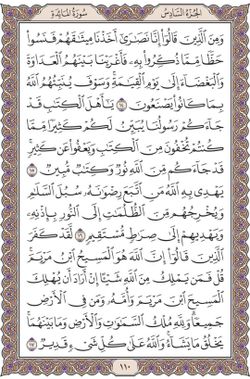 الجزء السادس
سورة المائدة
وَمِنَ ٱلَّذِينَ قَالُوٓا۟ إِنَّا نَصَٰرَىٰٓ أَخَذْنَا مِيثَٰقَهُمْ فَنَسُوا۟
حَظًّا مِّمَّا ذُكِّرُوا۟ بِهِۦ فَأَغْرَيْنَا بَيْنَهُمُ ٱلْعَدَاوَةَ
وَٱلْبَغْضَآءَ إِلَىٰ يَوْمِ ٱلْقِيَٰمَةِ وَسَوْفَ يُنَبِّئُهُمُ ٱللَّهُ
بِمَا كَانُوا۟ يَصْنَعُونَ ١٤ يَٰٓأَهْلَ ٱلْكِتَٰبِ قَدْ
جَآءَكُمْ رَسُولُنَا يُبَيِّنُ لَكُمْ كَثِيرًا مِّمَّا
كُنتُمْ تُخْفُونَ مِنَ ٱلْكِتَٰبِ وَيَعْفُوا۟ عَن كَثِيرٍ
قَدْ جَآءَكُم مِّنَ ٱللَّهِ نُورٌ وَكِتَٰبٌ مُّبِينٌ ١٥
يَهْدِى بِهِ ٱللَّهُ مَنِ ٱتَّبَعَ رِضْوَٰنَهُۥ سُبُلَ ٱلسَّلَٰمِ
وَيُخْرِجُهُم مِّنَ ٱلظُّلُمَٰتِ إِلَى ٱلنُّورِ بِإِذْنِهِۦ
وَيَهْدِيهِمْ إِلَىٰ صِرَٰطٍ مُّسْتَقِيمٍ ١٦ لَّقَدْ كَفَرَ
ٱلَّذِينَ قَالُوٓا۟ إِنَّ ٱللَّهَ هُوَ ٱلْمَسِيحُ ٱبْنُ مَرْيَمَ
قُلْ فَمَن يَمْلِكُ مِنَ ٱللَّهِ شَيْـًٔا إِنْ أَرَادَ أَن يُهْلِكَ
ٱلْمَسِيحَ ٱبْنَ مَرْيَمَ وَأُمَّهُۥ وَمَن فِى ٱلْأَرْضِ
جَمِيعًا وَلِلَّهِ مُلْكُ ٱلسَّمَٰوَٰتِ وَٱلْأَرْضِ وَمَا بَيْنَهُمَا
يَخْلُقُ مَا يَشَآءُ وَٱللَّهُ عَلَىٰ كُلِّ شَىْءٍ قَدِيرٌ ١٧
١١٠